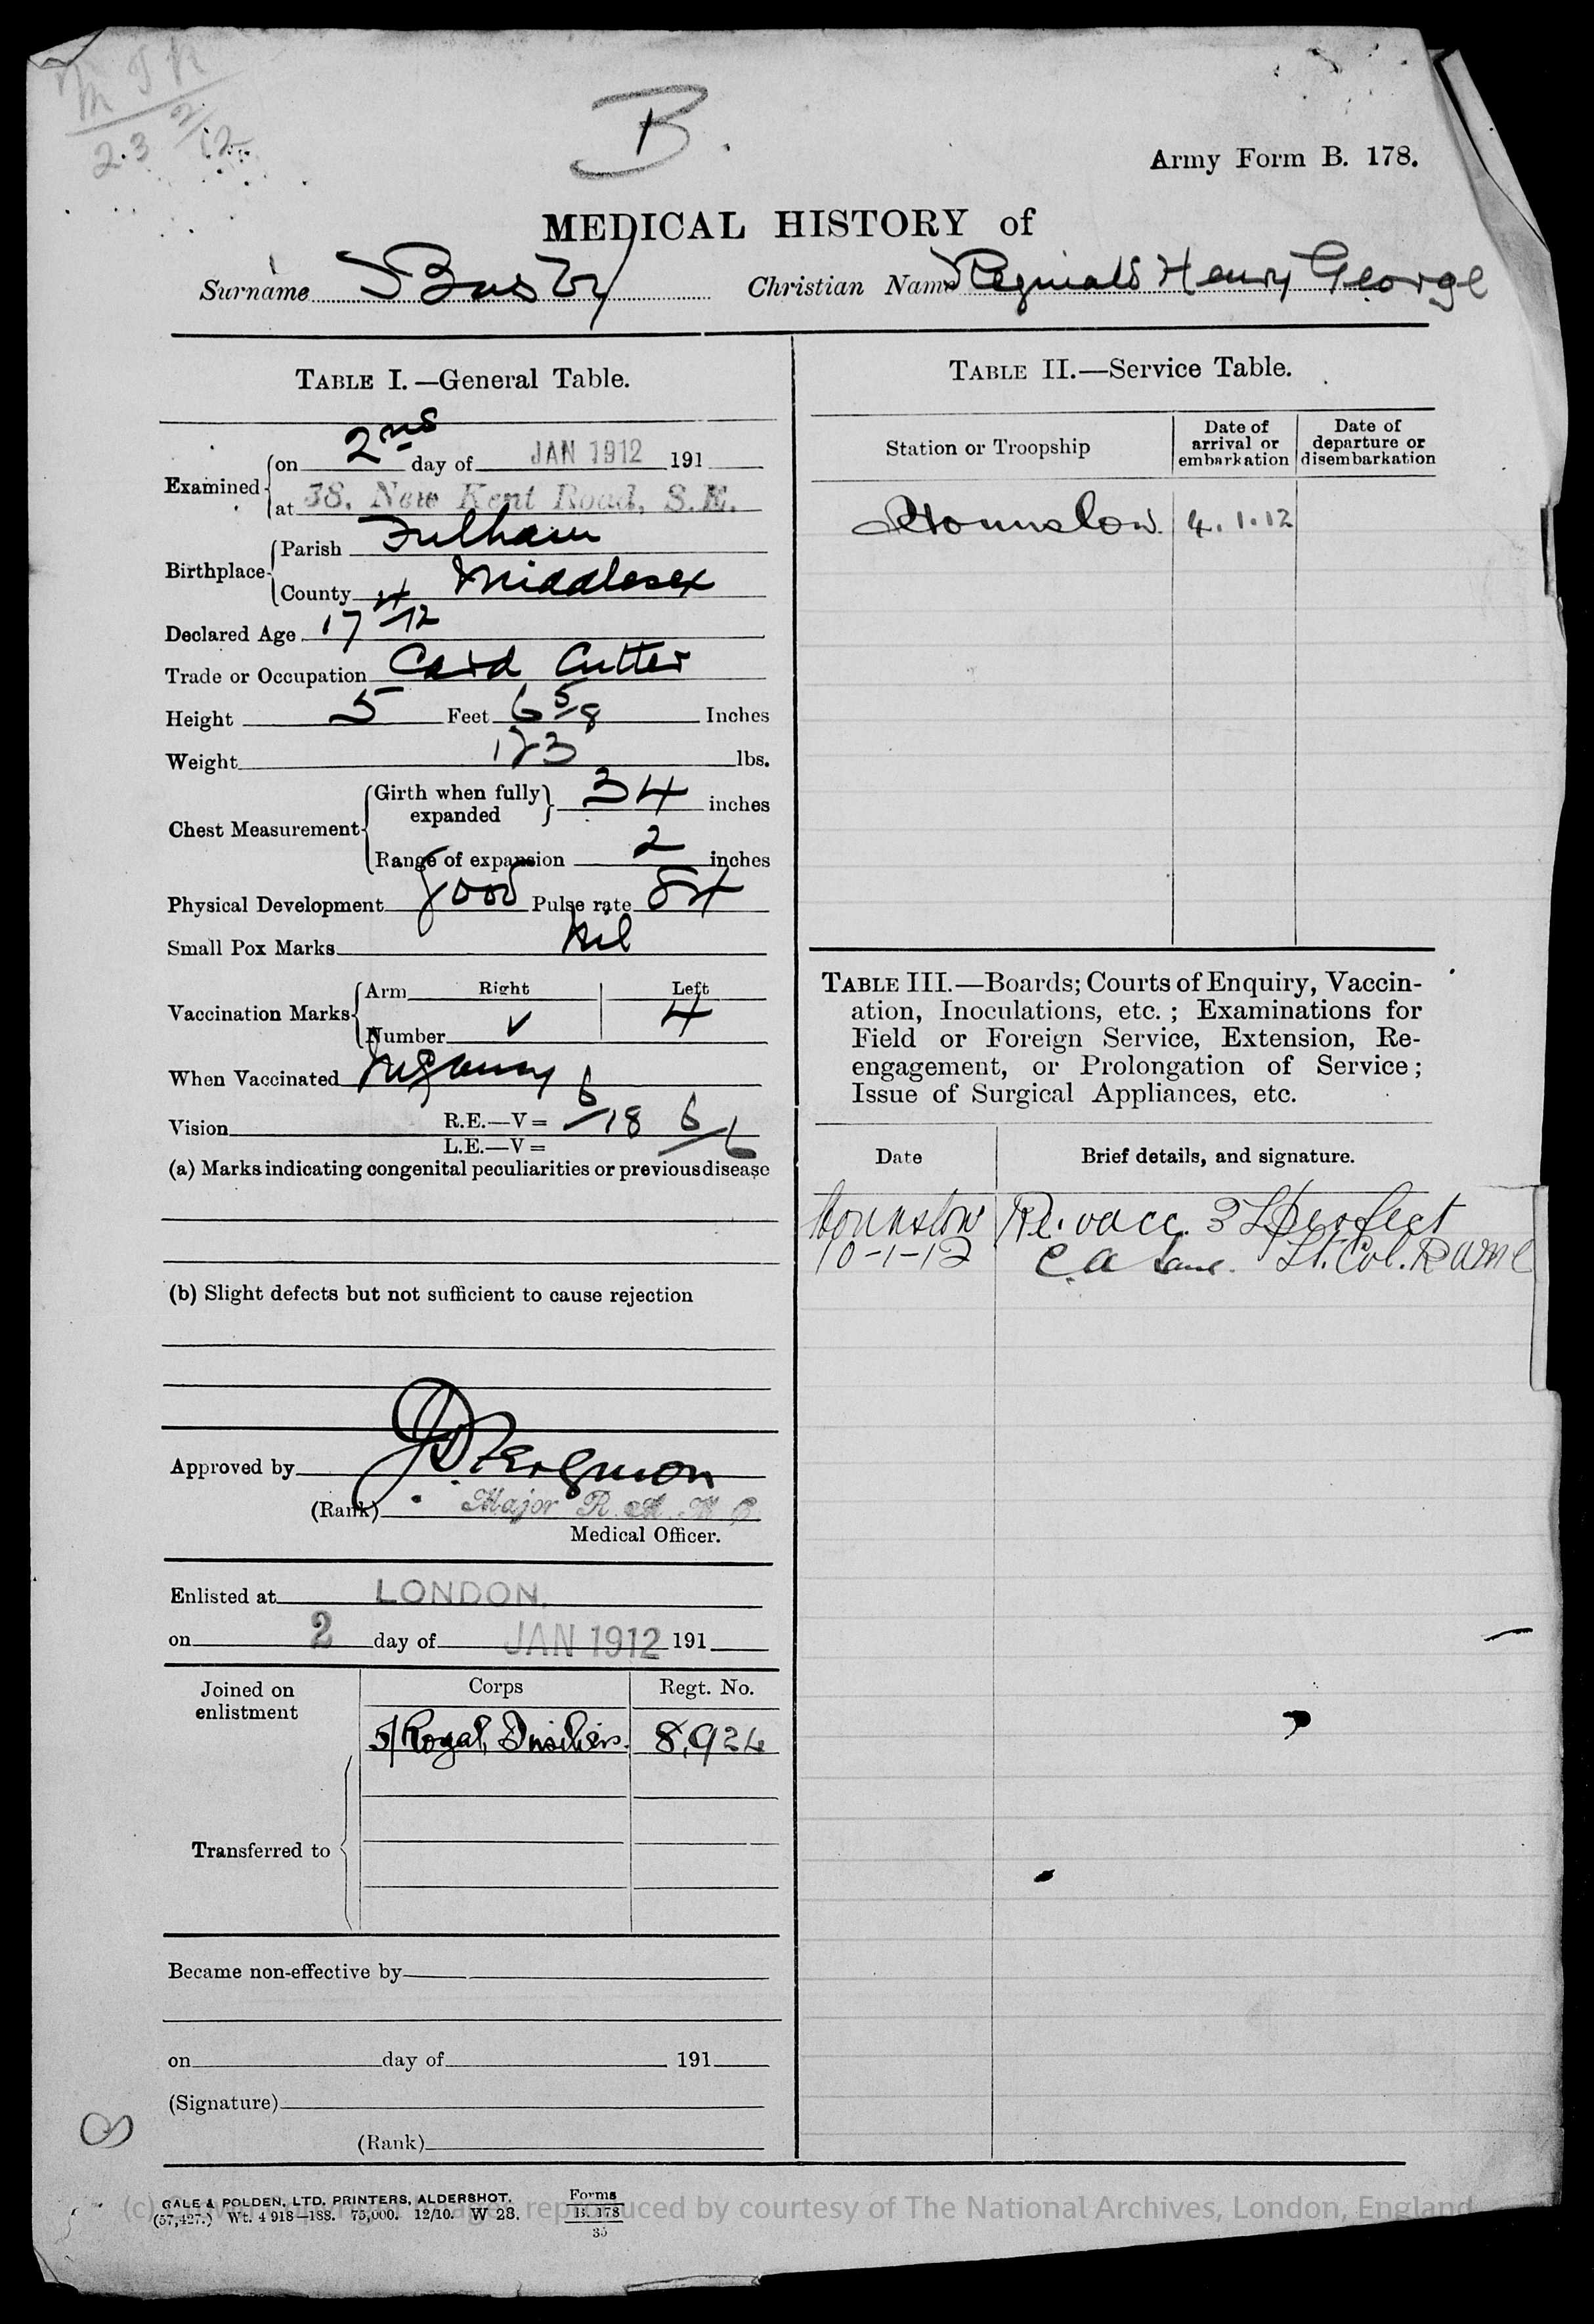 B.
2.3
Army Form B. 178.
MEDICAL HISTORY of
Surname Busby Christian Name Reginald Henry George
TABLE I.—General Table.
Examined on 2nd day of JAN 1912 191
at 38, New Kent Road, S.E.
Birthplace Parish Fulham
County Middlesex
Declared Age 17
Trade or Occupation Card Cutter
Height 5 Feet 6 5/8 Inches
Weight 123 lbs.
Chest Measurement Girth when fully expanded 34 inches
Range of expansion 2 inches
Physical Development good Pulse rate 84
Small Pox Marks Nil
Vaccination Marks Arm Right Left
Number ✓ 4
When Vaccinated Infancy
Vision R.E.—V= 6/18 6/6
L.E.—V=
(a) Marks indicating congenital peculiarities or previous disease
(b) Slight defects but not sufficient to cause rejection
Approved by
(Rank) Major R.A.M.C.
Medical Officer.
Enlisted at LONDON.
on 2 day of JAN 1912 191
Joined on enlistment Corps Regt. No.
5/Royal Fusiliers. 8,924
Transferred to
Became non-effective by
on day of 191
(Signature)
(Rank)
TABLE II.—Service Table.
Station or Troopship Date of arrival or embarkation Date of departure or disembarkation
Hounslow 4.1.12
TABLE III.—Boards; Courts of Enquiry, Vaccin-
ation, Inoculations, etc.; Examinations for
Field or Foreign Service, Extension, Re-
engagement, or Prolongation of Service;
Issue of Surgical Appliances, etc.
Date Brief details, and signature.
Hounslow Re. vacc. 3 L perfect
10-1-12 C.A. Lane. Lt. Col. RAMC
8
GALE & POLDEN, LTD. PRINTERS, ALDERSHOT.
(57,427.) Wt. 4918—188. 75,000. 12/10. W 28.
Forms
B. 178
35
reproduced by courtesy of The National Archives, London, England